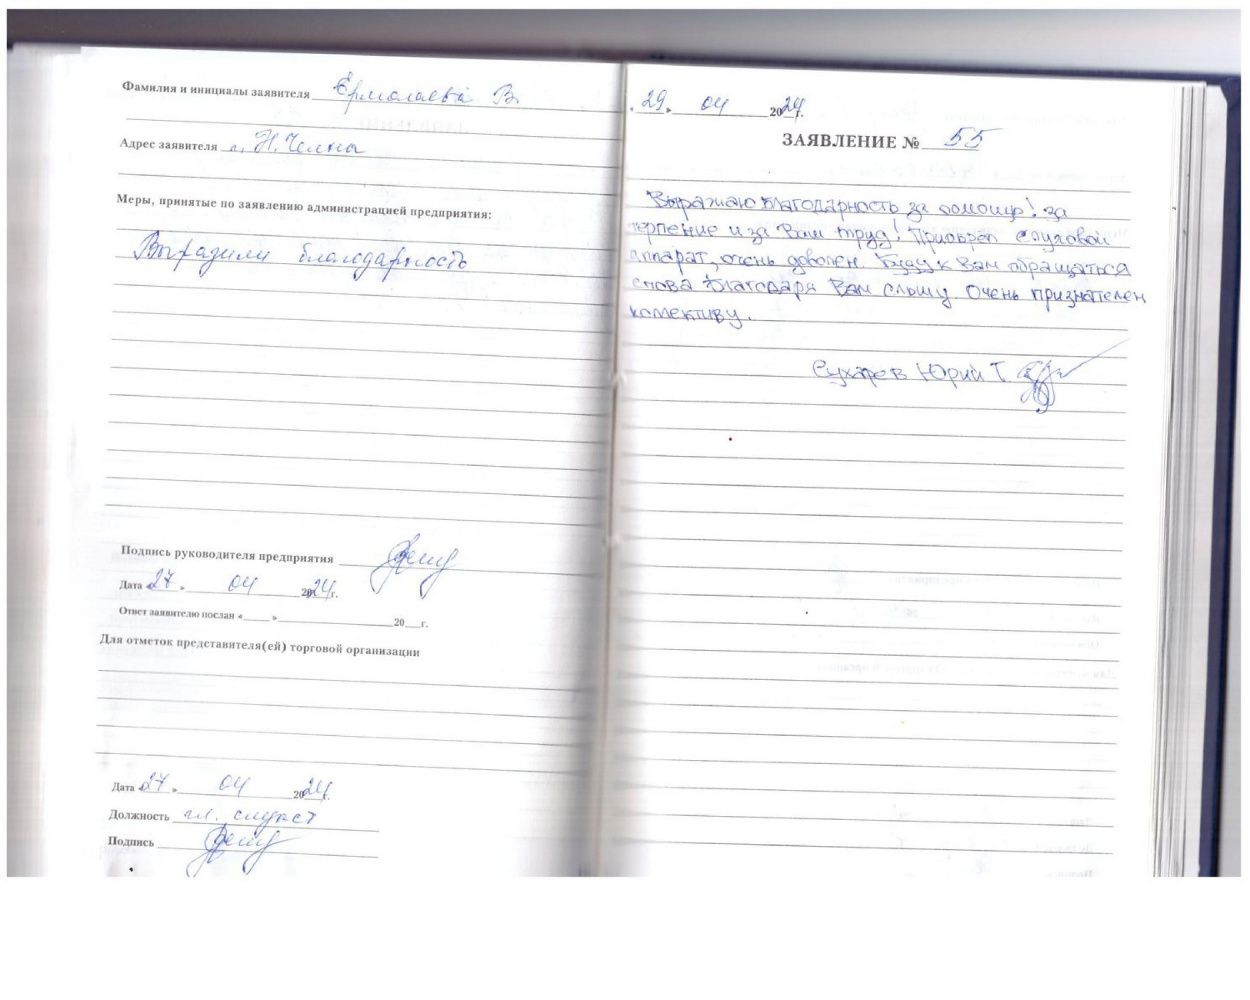 Фамилия и инициалы заявителя Ермолаева В.
Адрес заявителя г. Н.Челны
Меры, принятые по заявлению администрацией предприятия:
Выразили благодарность
Подпись руководителя предприятия
Дата «27» 04 2024 г.
Ответ заявителю послан «____» 20__г.
Для отметок представителя(ей) торговой организации
Дата «27» 04 2024 г.
Должность гл.
Подпись
«29» 04 2024 г.
ЗАЯВЛЕНИЕ № 55
Выражаю благодарность за помощь! за
терпение и за Ваш труд! Приобрел слуховой
аппарат, очень доволен. Буду к Вам обращаться
снова благодаря Вам слышу. Очень признателен
коллективу.
Сухарев Юрий Т.